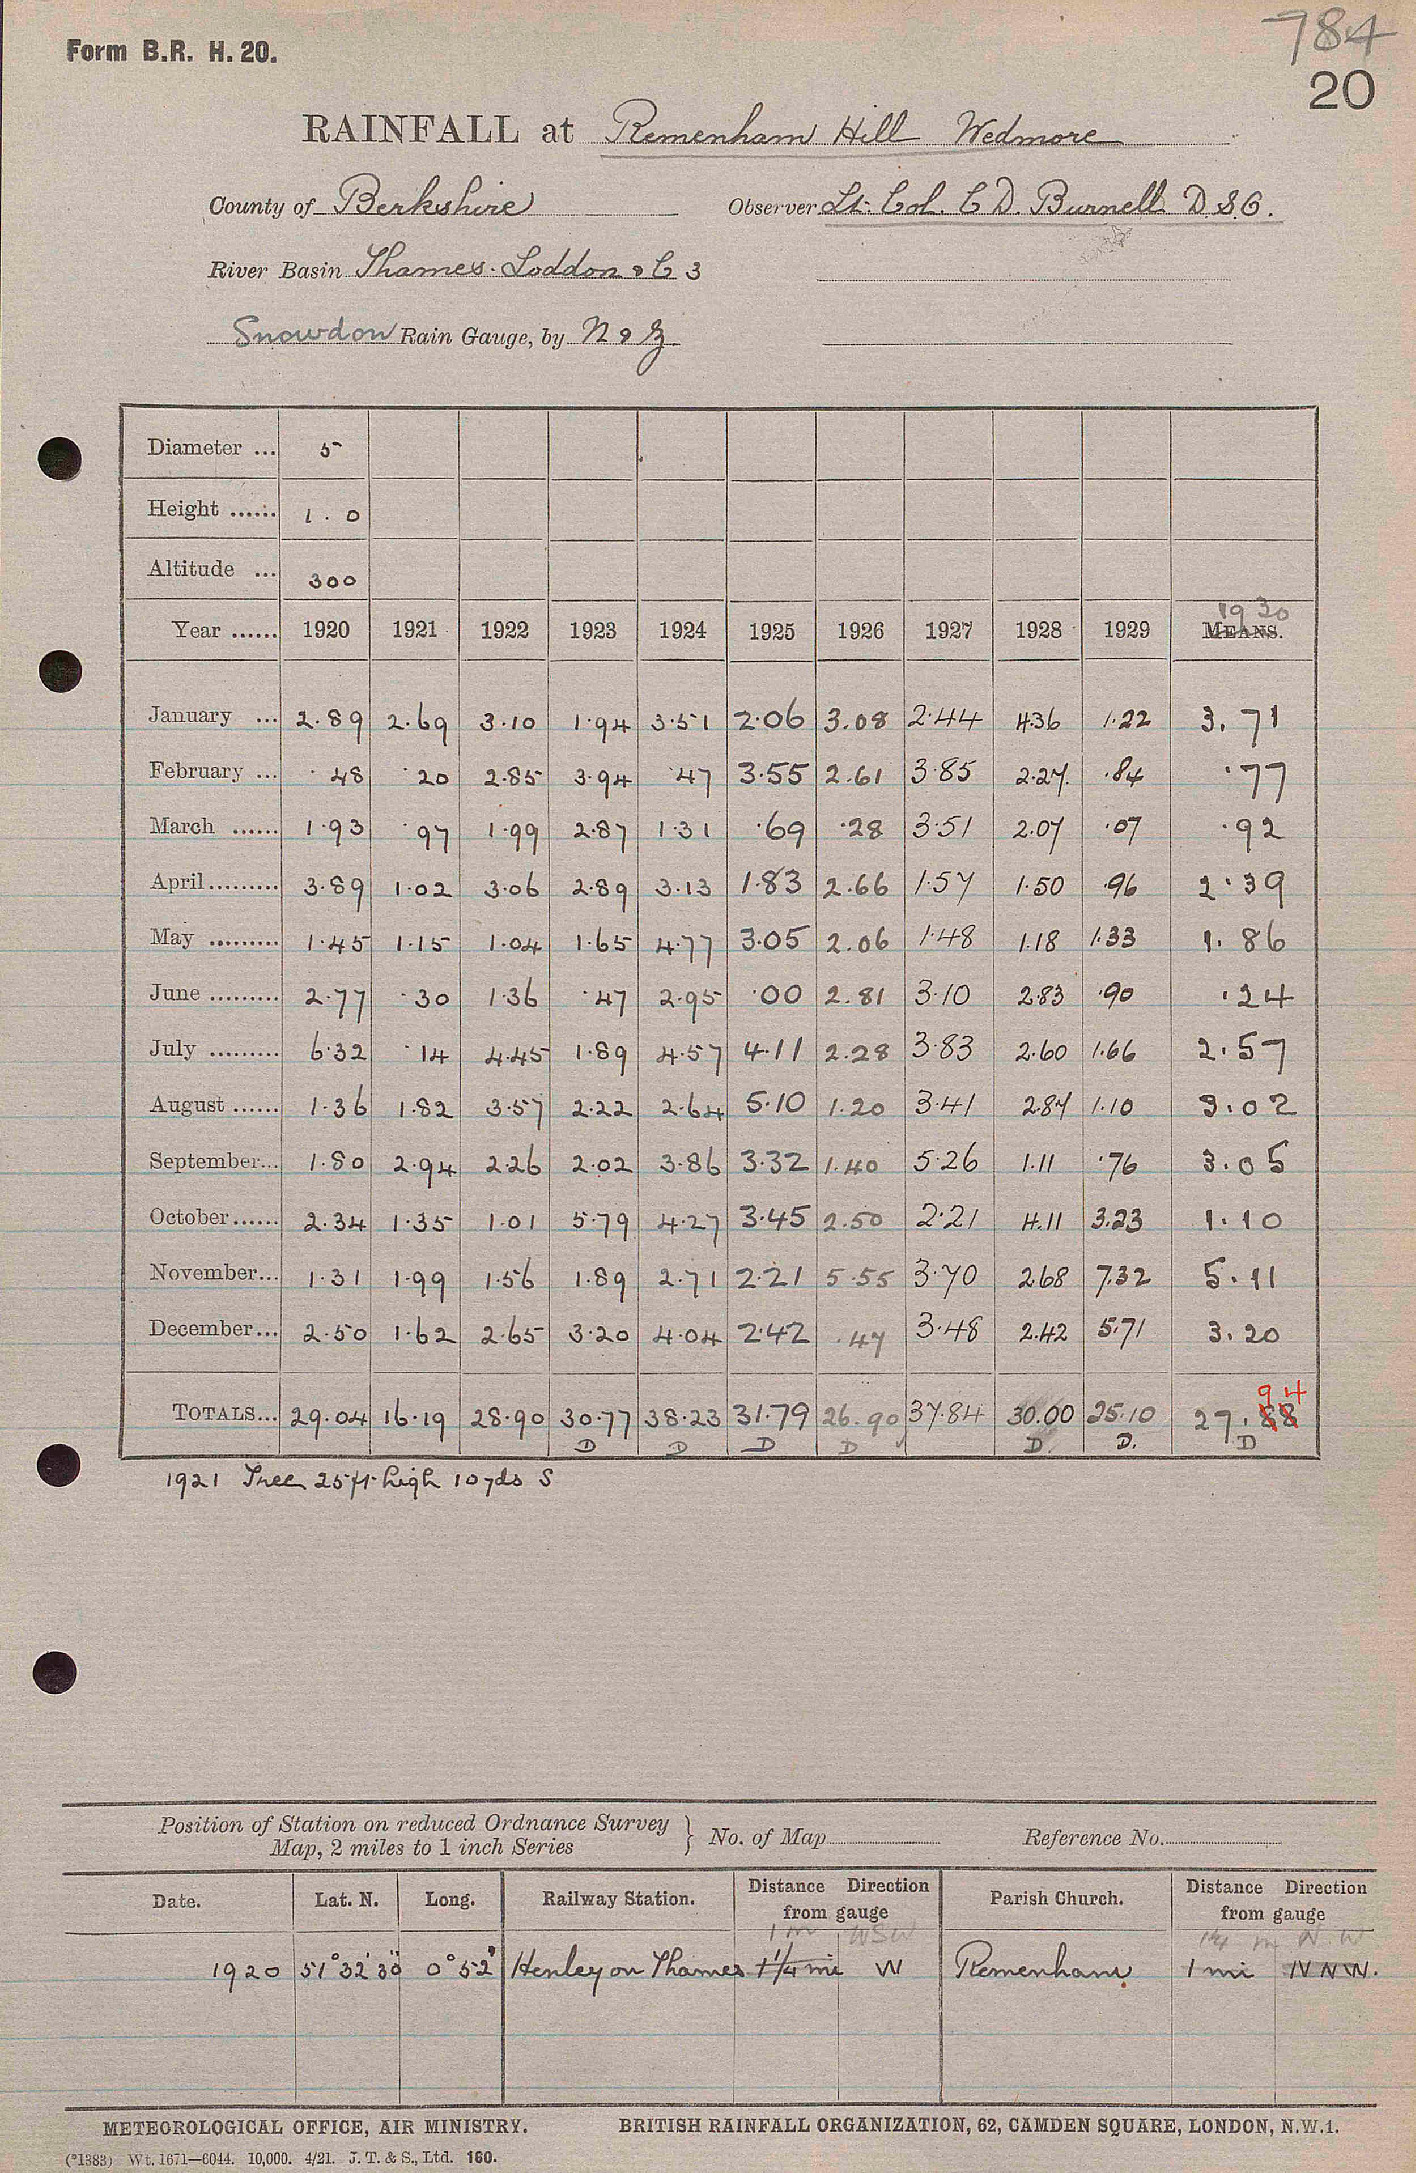 784
Form B.R. H. 20.
20
RAINFALL at Remenham Hill Wedmore
County of Berkshire Observer Lt. Col. C D. Burnell D S O.
River Basin Thames. Loddon & C 3
Snowdon Rain Gauge, by N & Z
Diameter ... 5
Height ...... 1 . 0
Altitude ... 300
1930
Year ...... 1920 1921 1922 1923 1924 1925 1926 1927 1928 1929 MEANS.
January ... 2.89 2.69 3.10 1.94 3.51 2.06 3.08 2.44 4.36 1.22 3.71
February ... .48 .20 2.85 3.94 .47 3.55 2.61 3.85 2.27 .84 .77
March ...... 1.93 .97 1.99 2.87 1.31 .69 .28 3.51 2.07 .07 .92
April ......... 3.89 1.02 3.06 2.89 3.13 1.83 2.66 1.57 1.50 .96 2.39
May ......... 1.45 1.15 1.04 1.65 4.77 3.05 2.06 1.48 1.18 1.33 1.86
June ......... 2.77 .30 1.36 .47 2.95 .00 2.81 3.10 2.83 .90 .24
July ......... 6.32 .14 4.45 1.89 4.57 4.11 2.28 3.83 2.60 1.66 2.57
August ...... 1.36 1.82 3.57 2.22 2.64 5.10 1.20 3.41 2.87 1.10 3.02
September... 1.80 2.94 2.26 2.02 3.86 3.32 1.40 5.26 1.11 .76 3.05
October...... 2.34 1.35 1.01 5.79 4.27 3.45 2.50 2.21 4.11 3.23 1.10
November... 1.31 1.99 1.56 1.89 2.71 2.21 5.55 3.70 2.68 7.32 5.11
December... 2.50 1.62 2.65 3.20 4.04 2.42 .47 3.48 2.42 5.71 3.20
94
TOTALS... 29.04 16.19 28.90 30.77 38.23 31.79 26.90 37.84 30.00 25.10 27.88
D D D D D. D. D
1921 Tree 25 ft. high 10 yds S
Position of Station on reduced Ordnance Survey
Map, 2 miles to 1 inch Series } No. of Map Reference No.
Date. Lat. N. Long. Railway Station. Distance Direction from gauge Parish Church. Distance Direction from gauge
1 m WSW 1¼ m N.W
1920 51° 32' 30" 0° 52' Henley on Thames 1¼ mi W Remenham 1 mi NNW.
METEOROLOGICAL OFFICE, AIR MINISTRY. BRITISH RAINFALL ORGANIZATION, 62, CAMDEN SQUARE, LONDON, N.W.1.
(*1383) Wt. 1671—6044. 10,000. 4/21. J. T. & S., Ltd. 160.